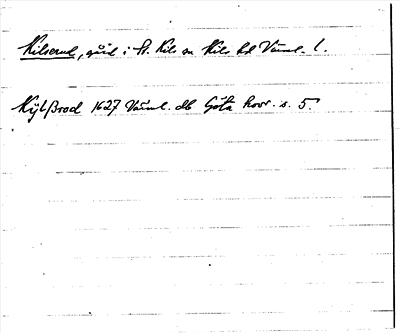 Kilserud, gård i St. Kils sn Kils hd Värml. l.
Kÿlßrod 1627 Värml. db Göta hovr. s. 5.